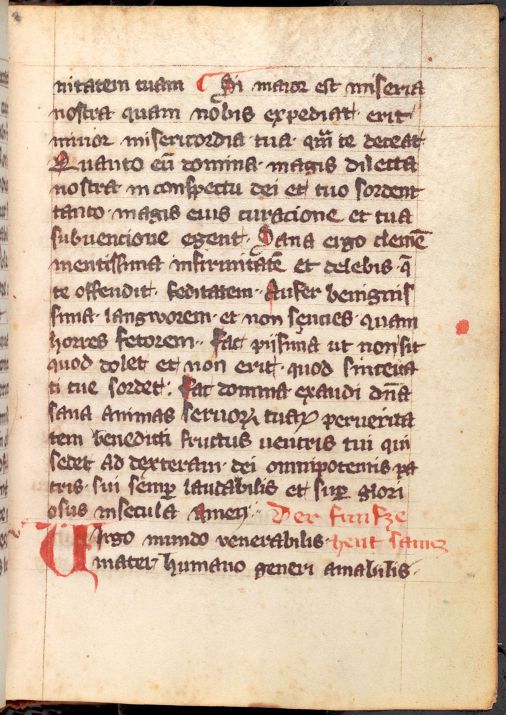 nitatem tuam Si maior est miseria
nostra quam nobis expediat · erit
minor misericordia tua · qm̄ te deceat
Quanto eī domina · magis dilecta
nostra in conspectu dei et tuo sordent
tanto · magis eius curacione et tua
subuencione egent · Sana ergo clemē
mentissima infirmitatē et delebis · q̄
te offendit · feditatem · Aufer benignis
sima · langworem · et non sencies · quam
horres fetorem · Fac piissima ut non sit
quod dolet et non erit · quod sinceita
ti tue sordet · Fac domina exaudi dn̄a
sana animas seruoꝝ tuaꝝ per
tem benedicti fructus uentris tui qui
sedet ad dexteram · dei omnipotentis pa
tris · sui semp̄ laudabilis et sup̄ glori
osus in secula Amen · Der funfze
Uirgo mundo venerabilis · hent
mater humano generi amabilis ·